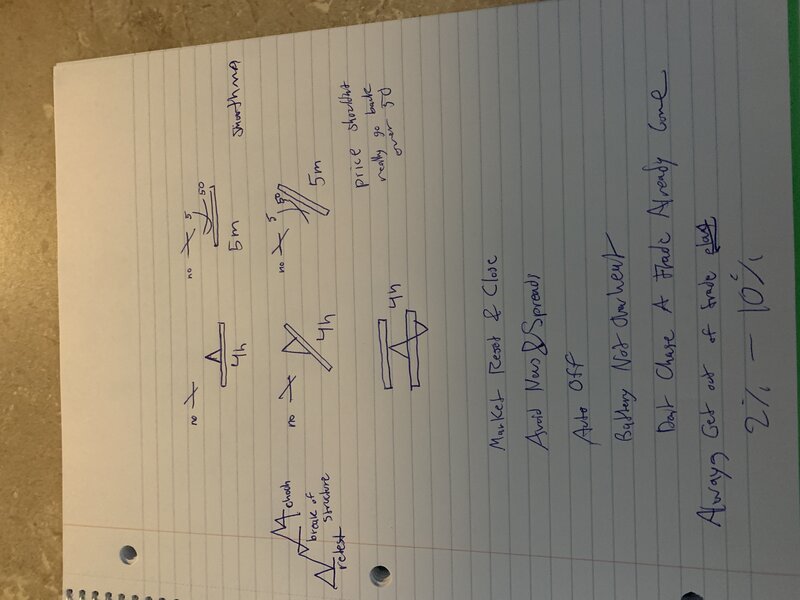 no
4h
no 5
50
5m
smoothma
choch
break of
structure
retest
no
4h
no 5
50
5m
4h
price shouldnt
really go back
over 50
Market Reset & Close
Avoid News & Spreads
Auto Off
Battery Not Overheat
Dont Chase A Trade Already Gone
Always Get out of trade
2% - 10%